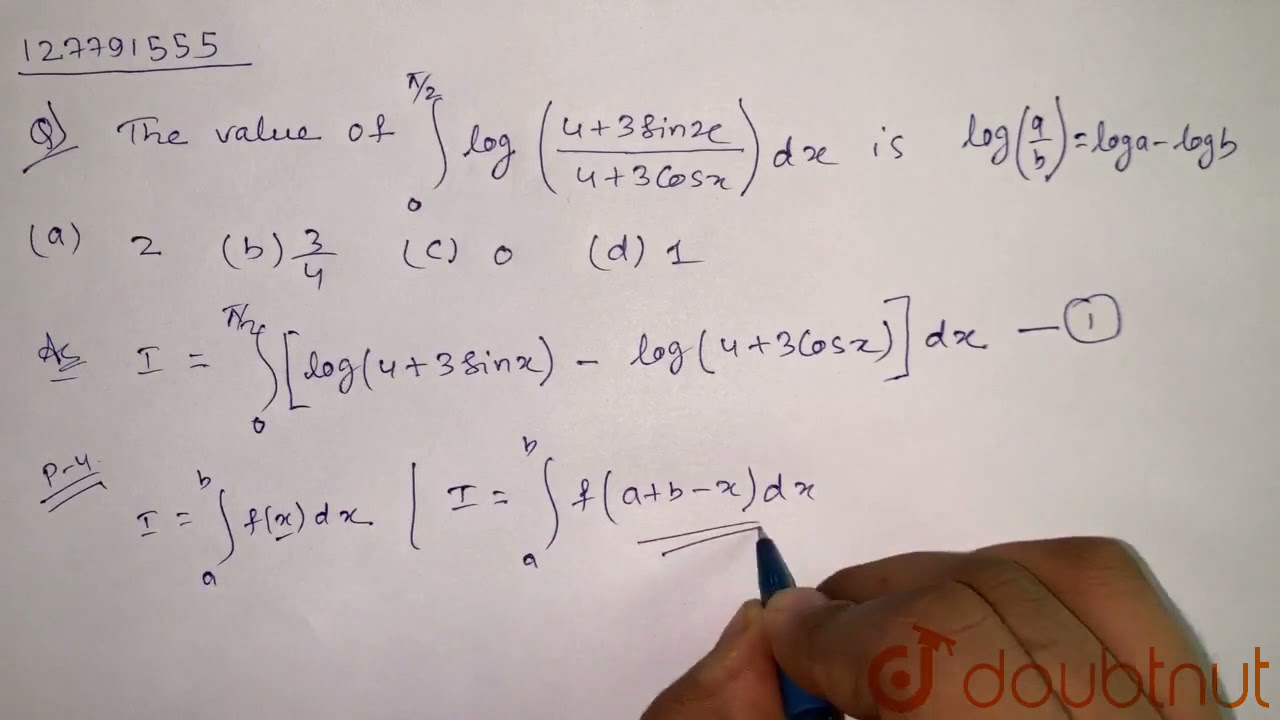 127791555
Q) The value of ∫₀^{π/2} log((4+3sinx)/(4+3cosx)) dx is log(a/b) = loga - logb
(a) 2 (b) 3/4 (c) 0 (d) 1
As I = ∫₀^{π/2} [log(4+3sinx) - log(4+3cosx)] dx — ①
P-4. I = ∫ₐᵇ f(x) dx | I = ∫ₐᵇ f(a+b-x) dx
doubtnut